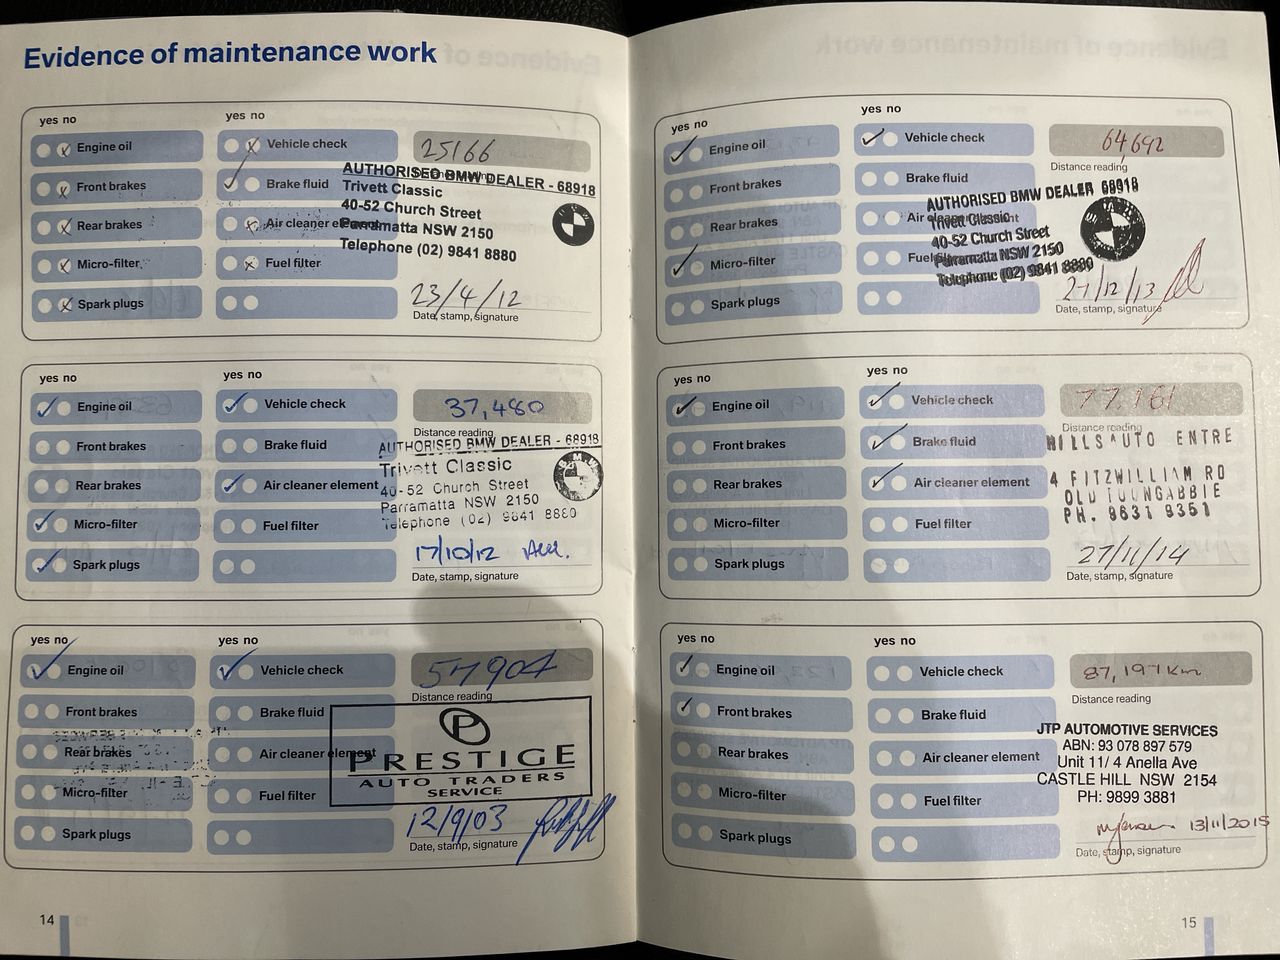 Evidence of maintenance work
yes no
yes no
Engine oil
Vehicle check
25166
Front brakes
Brake fluid
Rear brakes
Air cleaner element
Micro-filter
Fuel filter
Spark plugs
AUTHORISED BMW DEALER - 68918
Trivett Classic
40-52 Church Street
Parramatta NSW 2150
Telephone (02) 9841 8880
23/4/12
Date, stamp, signature
yes no
yes no
Engine oil
Vehicle check
37,480
Distance reading
Front brakes
Brake fluid
Rear brakes
Air cleaner element
Micro-filter
Fuel filter
Spark plugs
AUTHORISED BMW DEALER - 68918
Trivett Classic
40-52 Church Street
Parramatta NSW 2150
Telephone (02) 9841 8880
BMW
17/10/12
Date, stamp, signature
yes no
yes no
Engine oil
Vehicle check
57904
Distance reading
Front brakes
Brake fluid
Rear brakes
Air cleaner element
Micro-filter
Fuel filter
Spark plugs
P
PRESTIGE
AUTO TRADERS
SERVICE
12/9/03
Date, stamp, signature
14
yes no
yes no
Engine oil
Vehicle check
64,692
Distance reading
Front brakes
Brake fluid
Rear brakes
Air cleaner element
Micro-filter
Fuel
Spark plugs
AUTHORISED BMW DEALER 68918
Trivett Classic
40-52 Church Street
Parramatta NSW 2150
Telephone (02) 9841 8880
/12/13
Date, stamp, signature
yes no
yes no
Engine oil
Vehicle check
77,161
Distance reading
Front brakes
Brake fluid
Rear brakes
Air cleaner element
Micro-filter
Fuel filter
Spark plugs
HILLS AUTO ENTRE
4 FITZWILLIAM RD
OLD TOONGABBIE
PH. 9631 9351
27/11/14
Date, stamp, signature
yes no
yes no
Engine oil
Vehicle check
87,197km
Distance reading
Front brakes
Brake fluid
Rear brakes
Air cleaner element
Micro-filter
Fuel filter
Spark plugs
JTP AUTOMOTIVE SERVICES
ABN: 93 078 897 579
Unit 11/ 4 Anella Ave
CASTLE HILL NSW 2154
PH: 9899 3881
13/11/2015
Date, stamp, signature
15